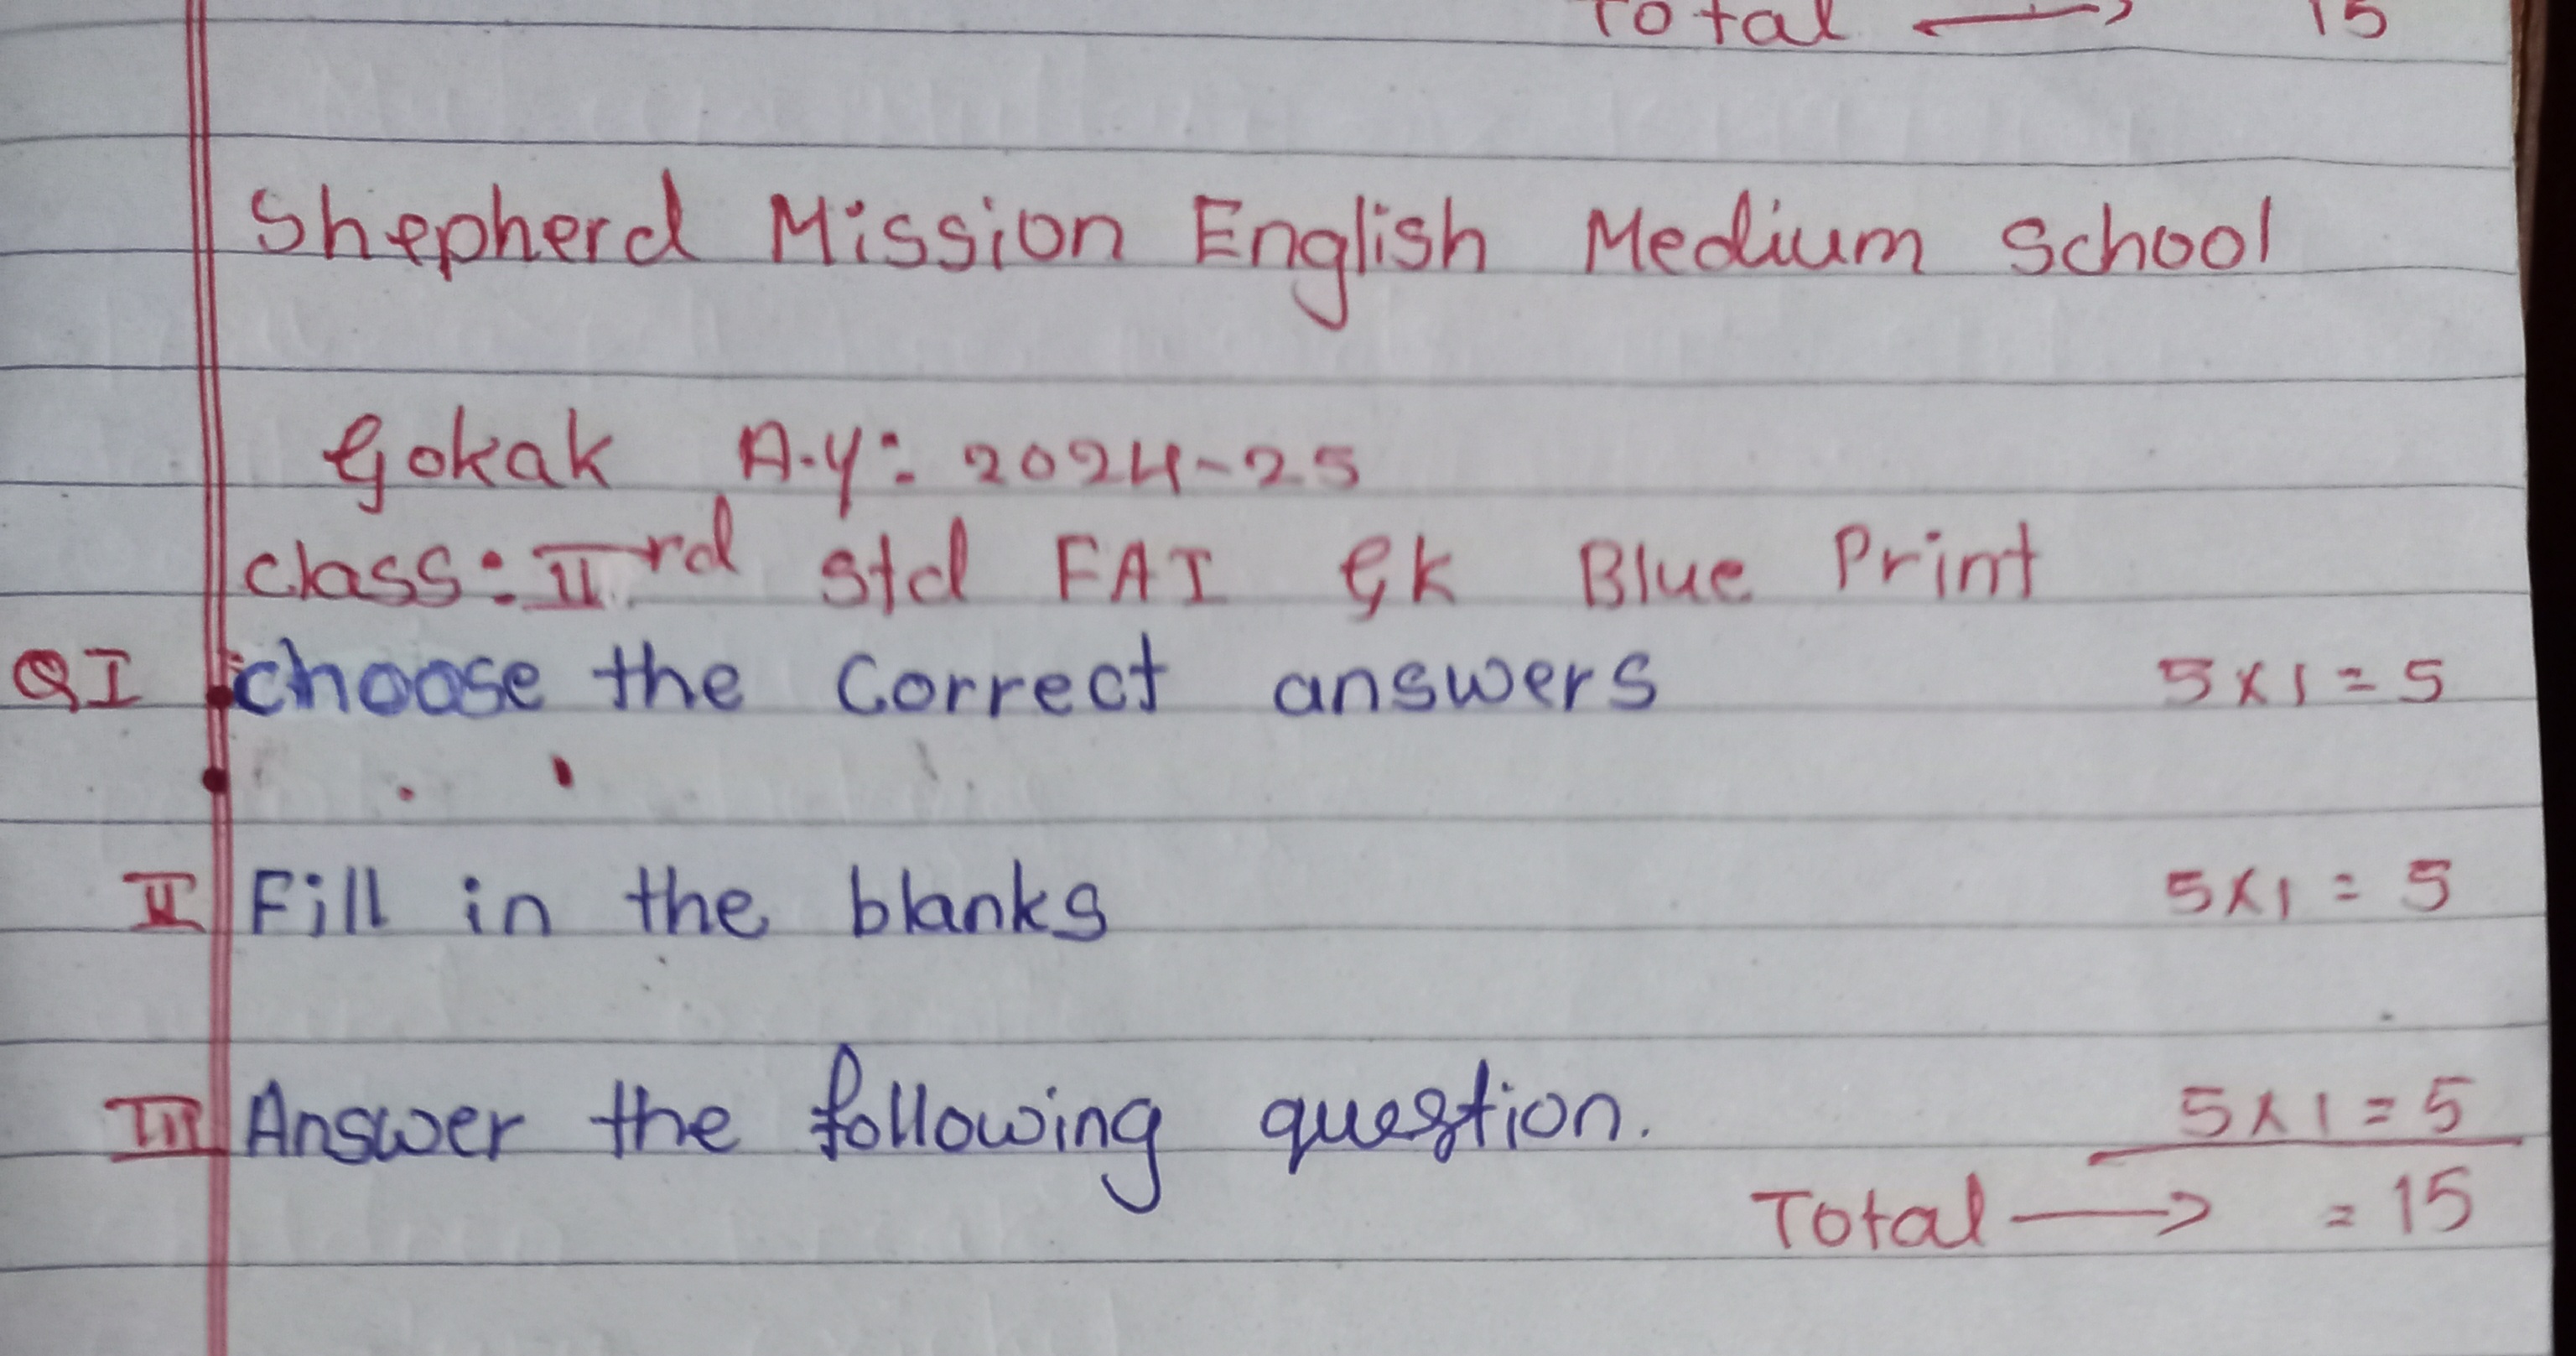 Total ⟶ 15
Shepherd Mission English Medium School
Gokak A.Y: 2024-25
class: IIrd std FAI GK Blue Print
QI choose the Correct answers 5x1=5
II Fill in the blanks 5x1=5
III Answer the following question. 5x1=5
Total ⟶ =15